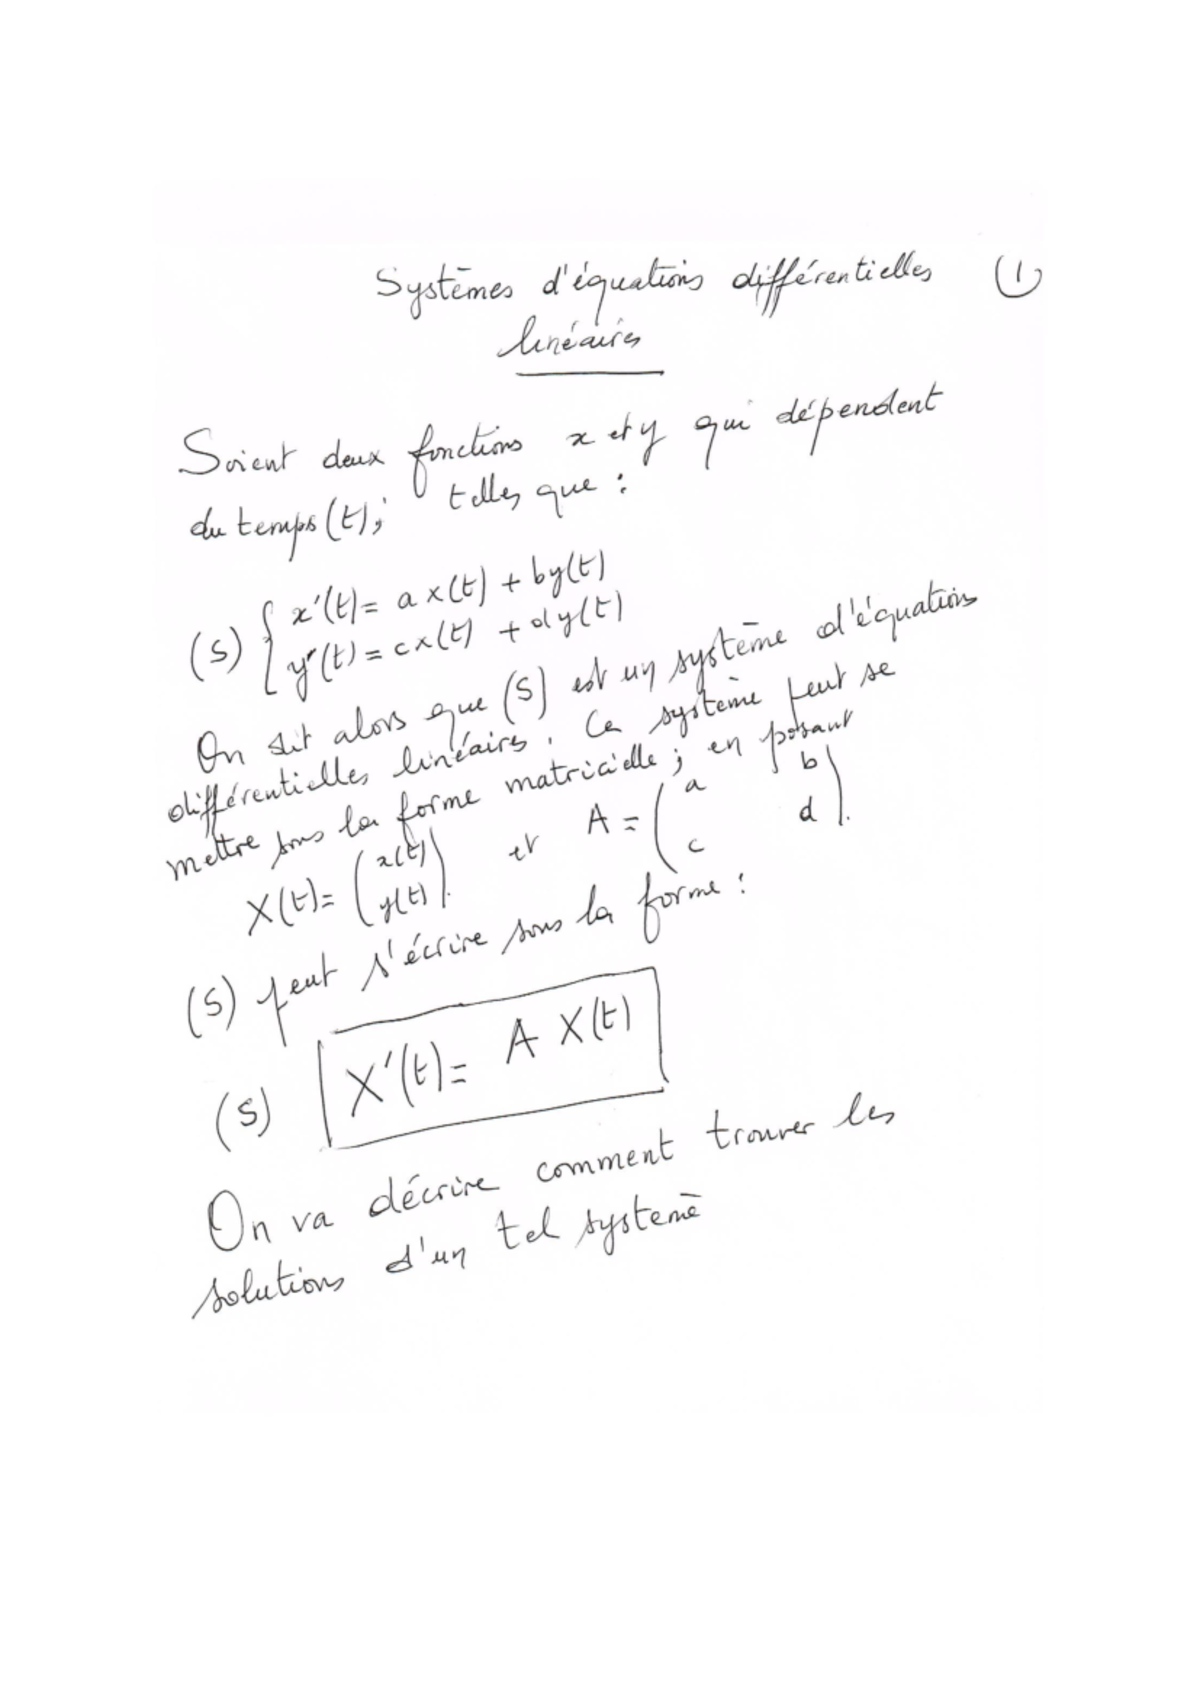 Systèmes d'équations différentielles (1)
linéaires
Soient deux fonctions x et y qui dépendent
du temps (t), telles que :
(S) { x'(t) = a x(t) + by(t)
y'(t) = cx(t) + dy(t)
On dit alors que (S) est un système d'équations
différentielles linéaires. Ce système peut se
mettre sous la forme matricielle ; en posant
X(t) = ( x(t) y(t) ) et A = ( a b
c d ).
(S) peut s'écrire sous la forme :
(S) X'(t) = A X(t)
On va décrire comment trouver les
solutions d'un tel système